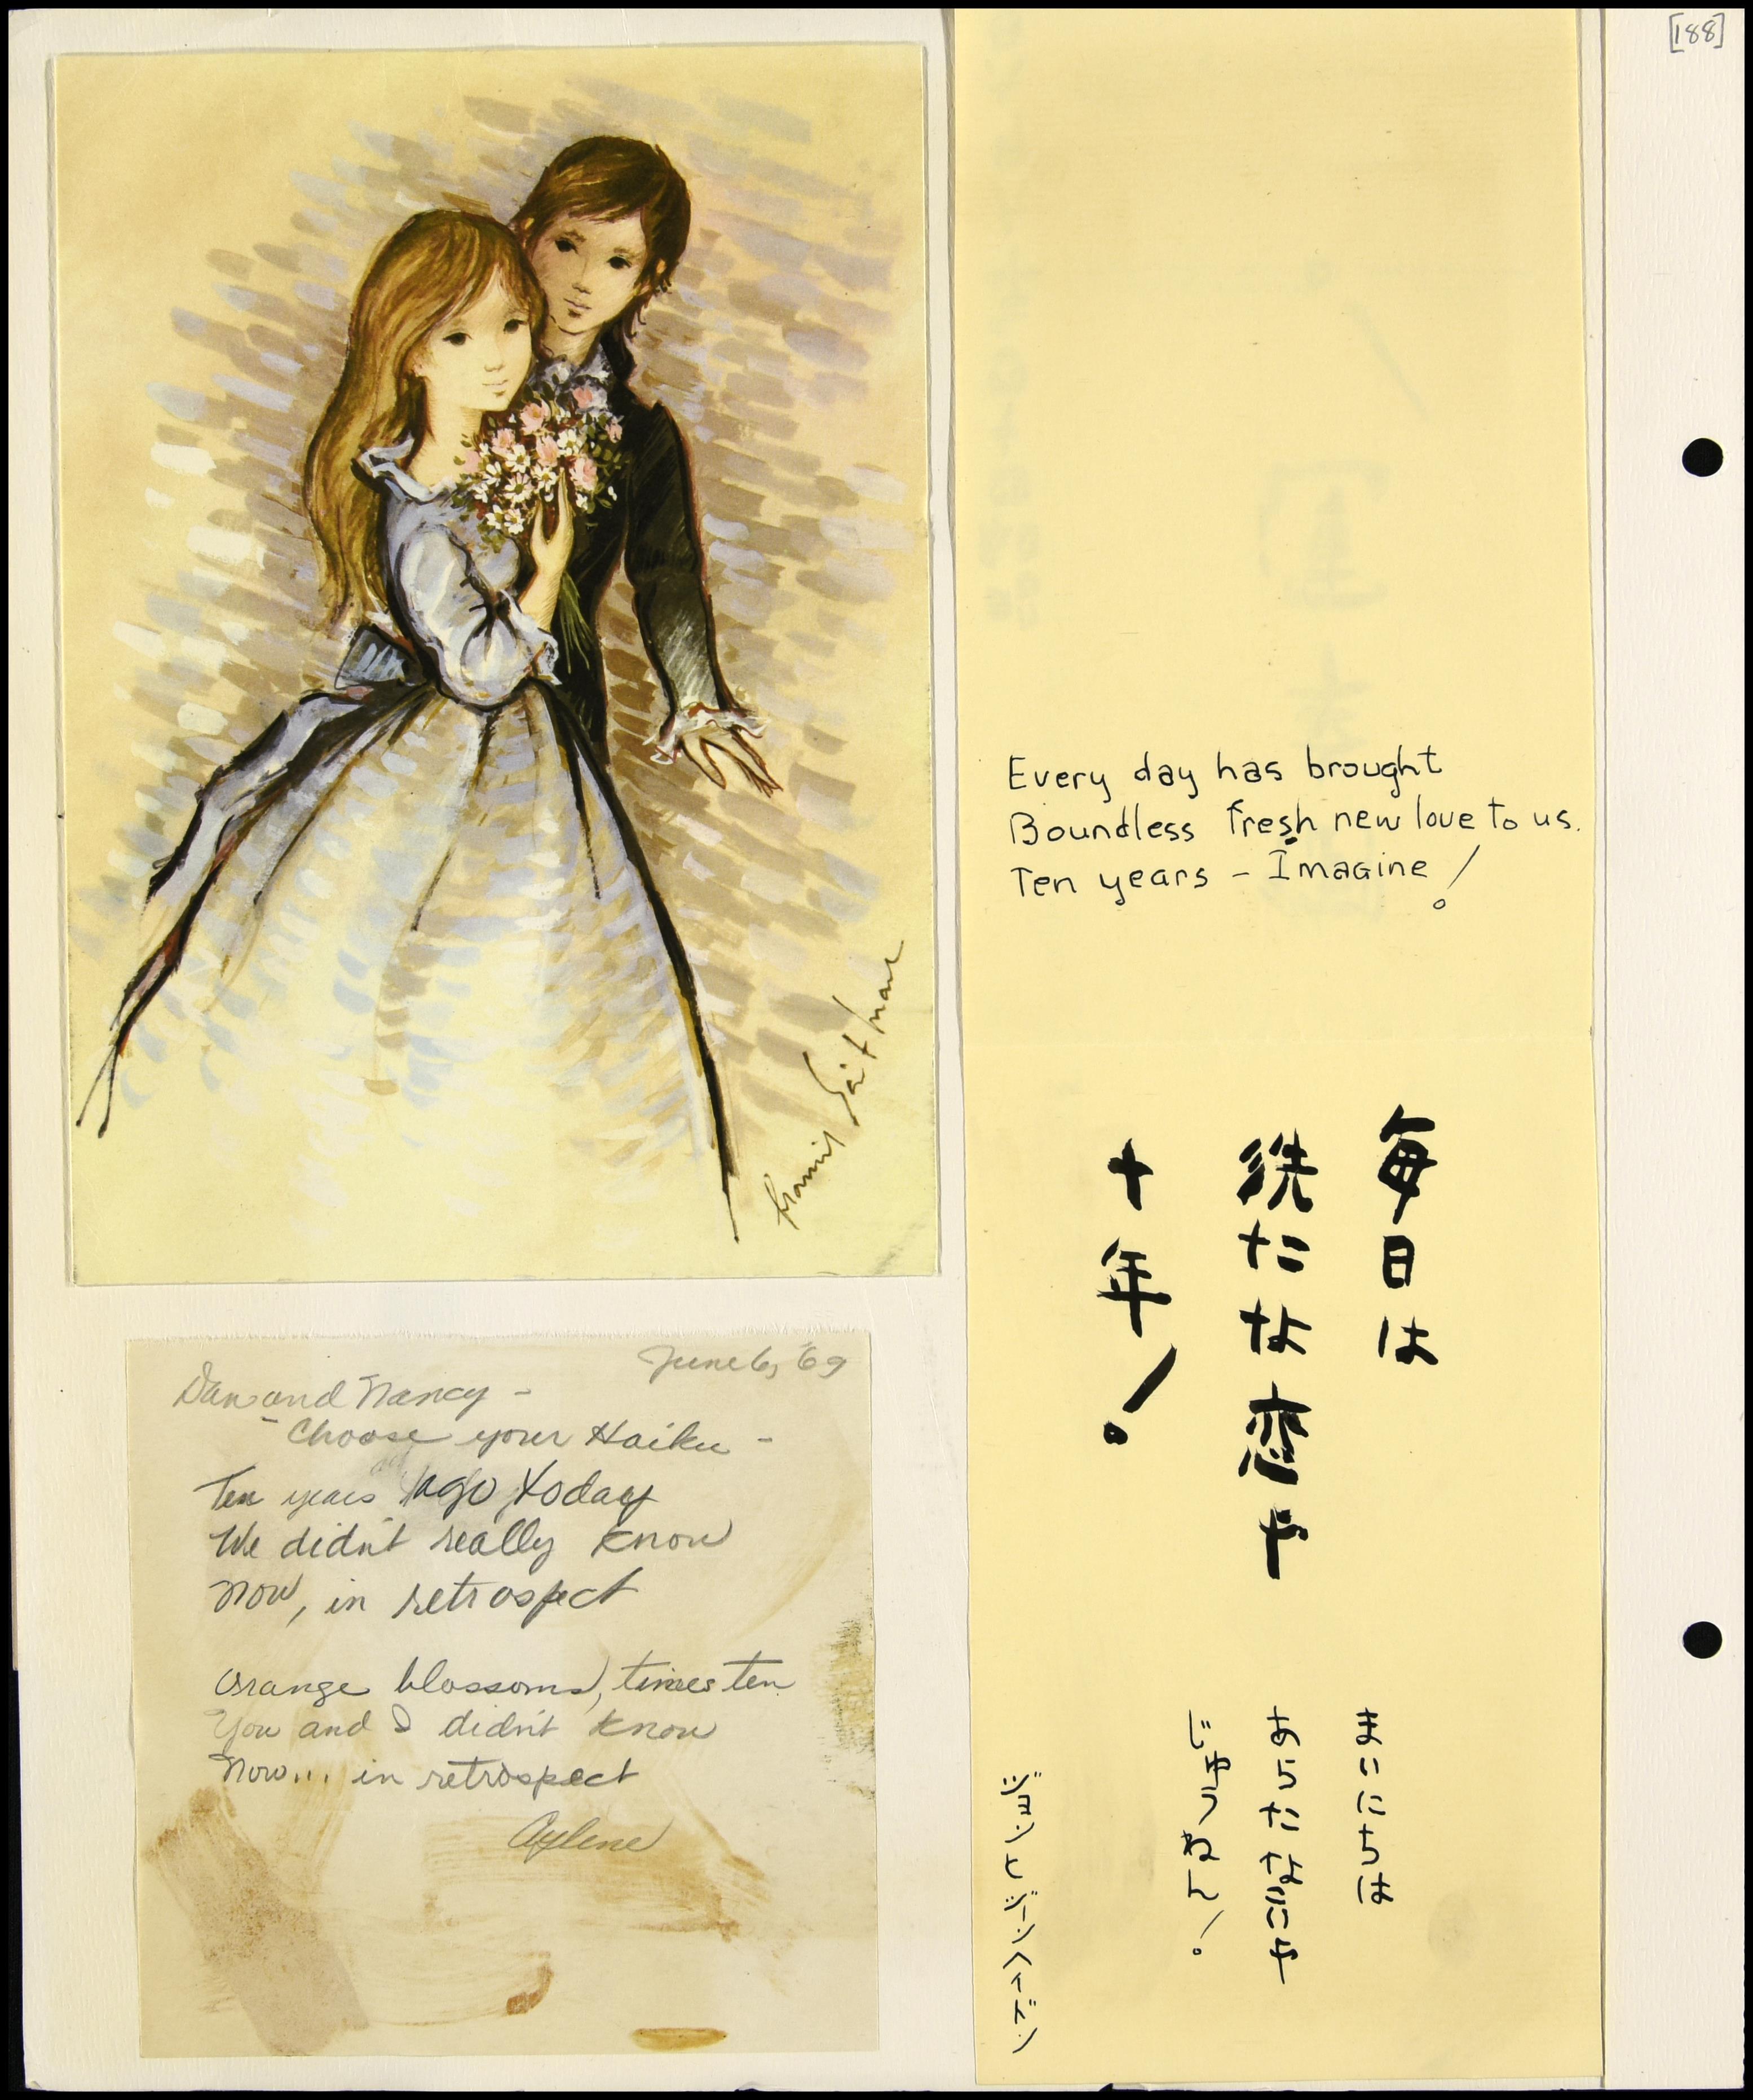 [188]
Every day has brought
Boundless fresh new love to us.
Ten years – Imagine!
毎日は
洗たな恋や
十年!
まいにちは
あらたなこいや
じゅうねん!
ジョンとジーン
June 6, '69
Dan and Nancy -
- Choose your Haiku -
Ten years ago, today
We didn't really know
Now, in retrospect
Orange blossoms, times ten
You and I didn't know
Now... in retrospect
Aylene